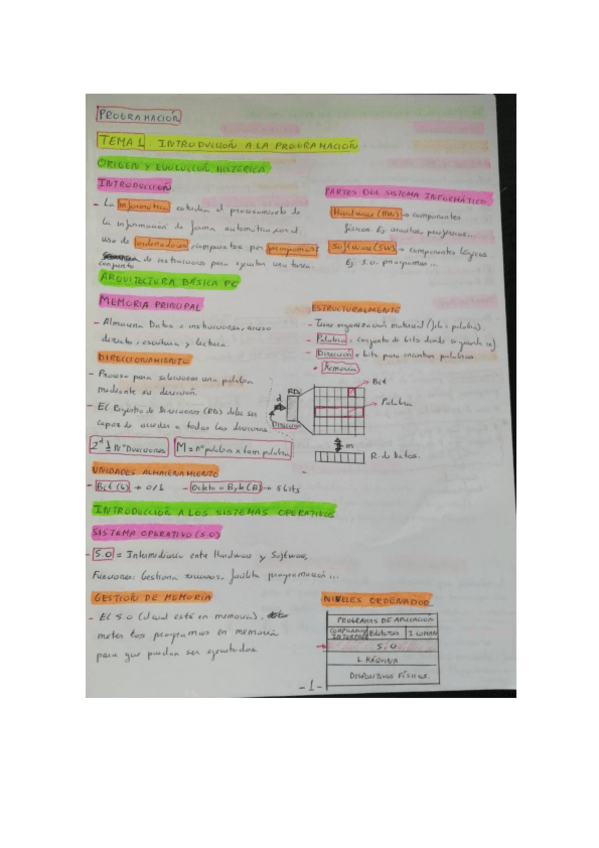 PROGRAMACIÓN
TEMA 1. INTRODUCCIÓN A LA PROGRAMACIÓN
ORIGEN Y EVOLUCIÓN HISTÓRICA
INTRODUCCIÓN
- La informática estudia el procesamiento de
la información de forma automática con el
uso de ordenadores compuestos por programas
conjunto de instrucciones para ejecutar una tarea.
PARTES DEL SISTEMA INFORMÁTICO
Hardware (HW) → componentes
físicos Ej: circuitos, periféricos...
Software (SW) → componentes lógicos
Ej: S.O. programas...
ARQUITECTURA BÁSICA PC
MEMORIA PRINCIPAL
- Almacena Datos e instrucciones, acceso
directo, escritura y lectura.
DIRECCIONAMIENTO
- Proceso para seleccionar una palabra
mediante su dirección.
- El Registro de Direcciones (RD) debe ser
capaz de acceder a todas las direcciones
2^d ≥ Nº Direcciones
M = nº palabras x tam palabra
ESTRUCTURALMENTE
- Tiene organización matricial (bits x palabra).
- Palabra = conjunto de bits donde se guarda
- Dirección = bits para encontrar palabras
• Memoria
Bit
RD
d
Palabra
Dirección
m
R. de Datos.
UNIDADES ALMACENAMIENTO
- Bit (b) → 0/1 - Octeto = Byte (B) → 8 bits
INTRODUCCIÓN A LOS SISTEMAS OPERATIVOS
SISTEMA OPERATIVO (S.O)
- S.O = Intermediario entre Hardware y Software,
Funciones: Gestiona recursos, facilita programación...
GESTIÓN DE MEMORIA
- El S.O (el cual está en memoria),
meter los programas en memoria
para que puedan ser ejecutados.
NIVELES ORDENADOR
PROGRAMAS DE APLICACIÓN
COMPILADOR INTERPRETE EDITORES I. COMAN
S.O
L. MÁQUINA
DISPOSITIVOS FÍSICOS.
- 1 -